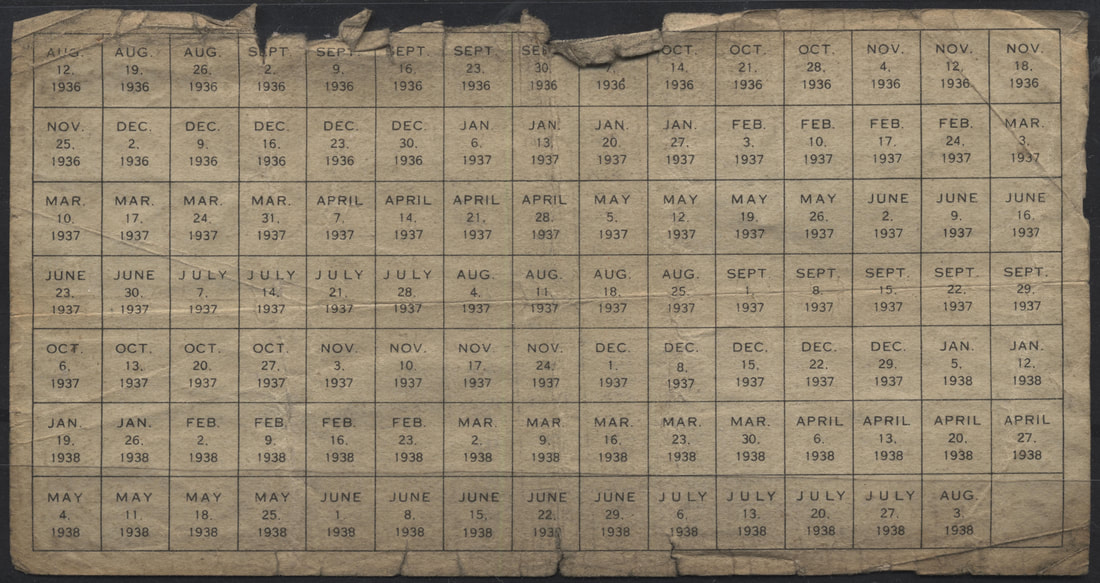 AUG. AUG. AUG. SEPT SEPT. SEPT. SEPT. OCT. OCT. OCT. NOV. NOV. NOV.
12. 19. 26. 2. 9. 16. 23. 30. 7. 14. 21. 28. 4. 12, 18.
1936 1936 1936 1936 1936 1936 1936 1936 1936 1936 1936 1936 1936 1936 1936
NOV. DEC. DEC. DEC. DEC. DEC. JAN. JAN. JAN. JAN. FEB. FEB. FEB. FEB. MAR.
25. 2. 9. 16. 23. 30. 6. 13. 20. 27. 3. 10. 17. 24. 3.
1936 1936 1936 1936 1936 1936 1937 1937 1937 1937 1937 1937 1937 1937 1937
MAR. MAR. MAR. MAR. APRIL APRIL APRIL APRIL MAY MAY MAY MAY JUNE JUNE JUNE
10. 17. 24. 31. 7. 14. 21. 28. 5. 12. 19. 26. 2. 9. 16.
1937 1937 1937 1937 1937 1937 1937 1937 1937 1937 1937 1937 1937 1937 1937
JUNE JUNE JULY JULY JULY JULY AUG. AUG. AUG. AUG. SEPT. SEPT. SEPT. SEPT. SEPT.
23. 30. 7. 14. 21. 28. 4. 11. 18. 25. 1. 8. 15. 22. 29.
1937 1937 1937 1937 1937 1937 1937 1937 1937 1937 1937 1937 1937 1937 1937
OCT. OCT. OCT. OCT. NOV. NOV. NOV. NOV. DEC. DEC. DEC. DEC. DEC. JAN. JAN.
6. 13. 20. 27. 3. 10. 17. 24. 1. 8. 15. 22. 29. 5. 12.
1937 1937 1937 1937 1937 1937 1937 1937 1937 1937 1937 1937 1937 1938 1938
JAN. JAN. FEB. FEB. FEB. FEB. MAR. MAR. MAR. MAR. MAR. APRIL APRIL APRIL APRIL
19. 26. 2. 9. 16. 23. 2. 9. 16. 23. 30. 6. 13. 20. 27.
1938 1938 1938 1938 1938 1938 1938 1938 1938 1938 1938 1938 1938 1938 1938
MAY MAY MAY MAY JUNE JUNE JUNE JUNE JUNE JULY JULY JULY JULY AUG.
4. 11 18. 25. 1. 8. 15. 22. 29. 6. 13. 20. 27. 3
1938 1938 1938 1938 1938 1938 1938 1938 1938 1938 1938 1938 1938 1938